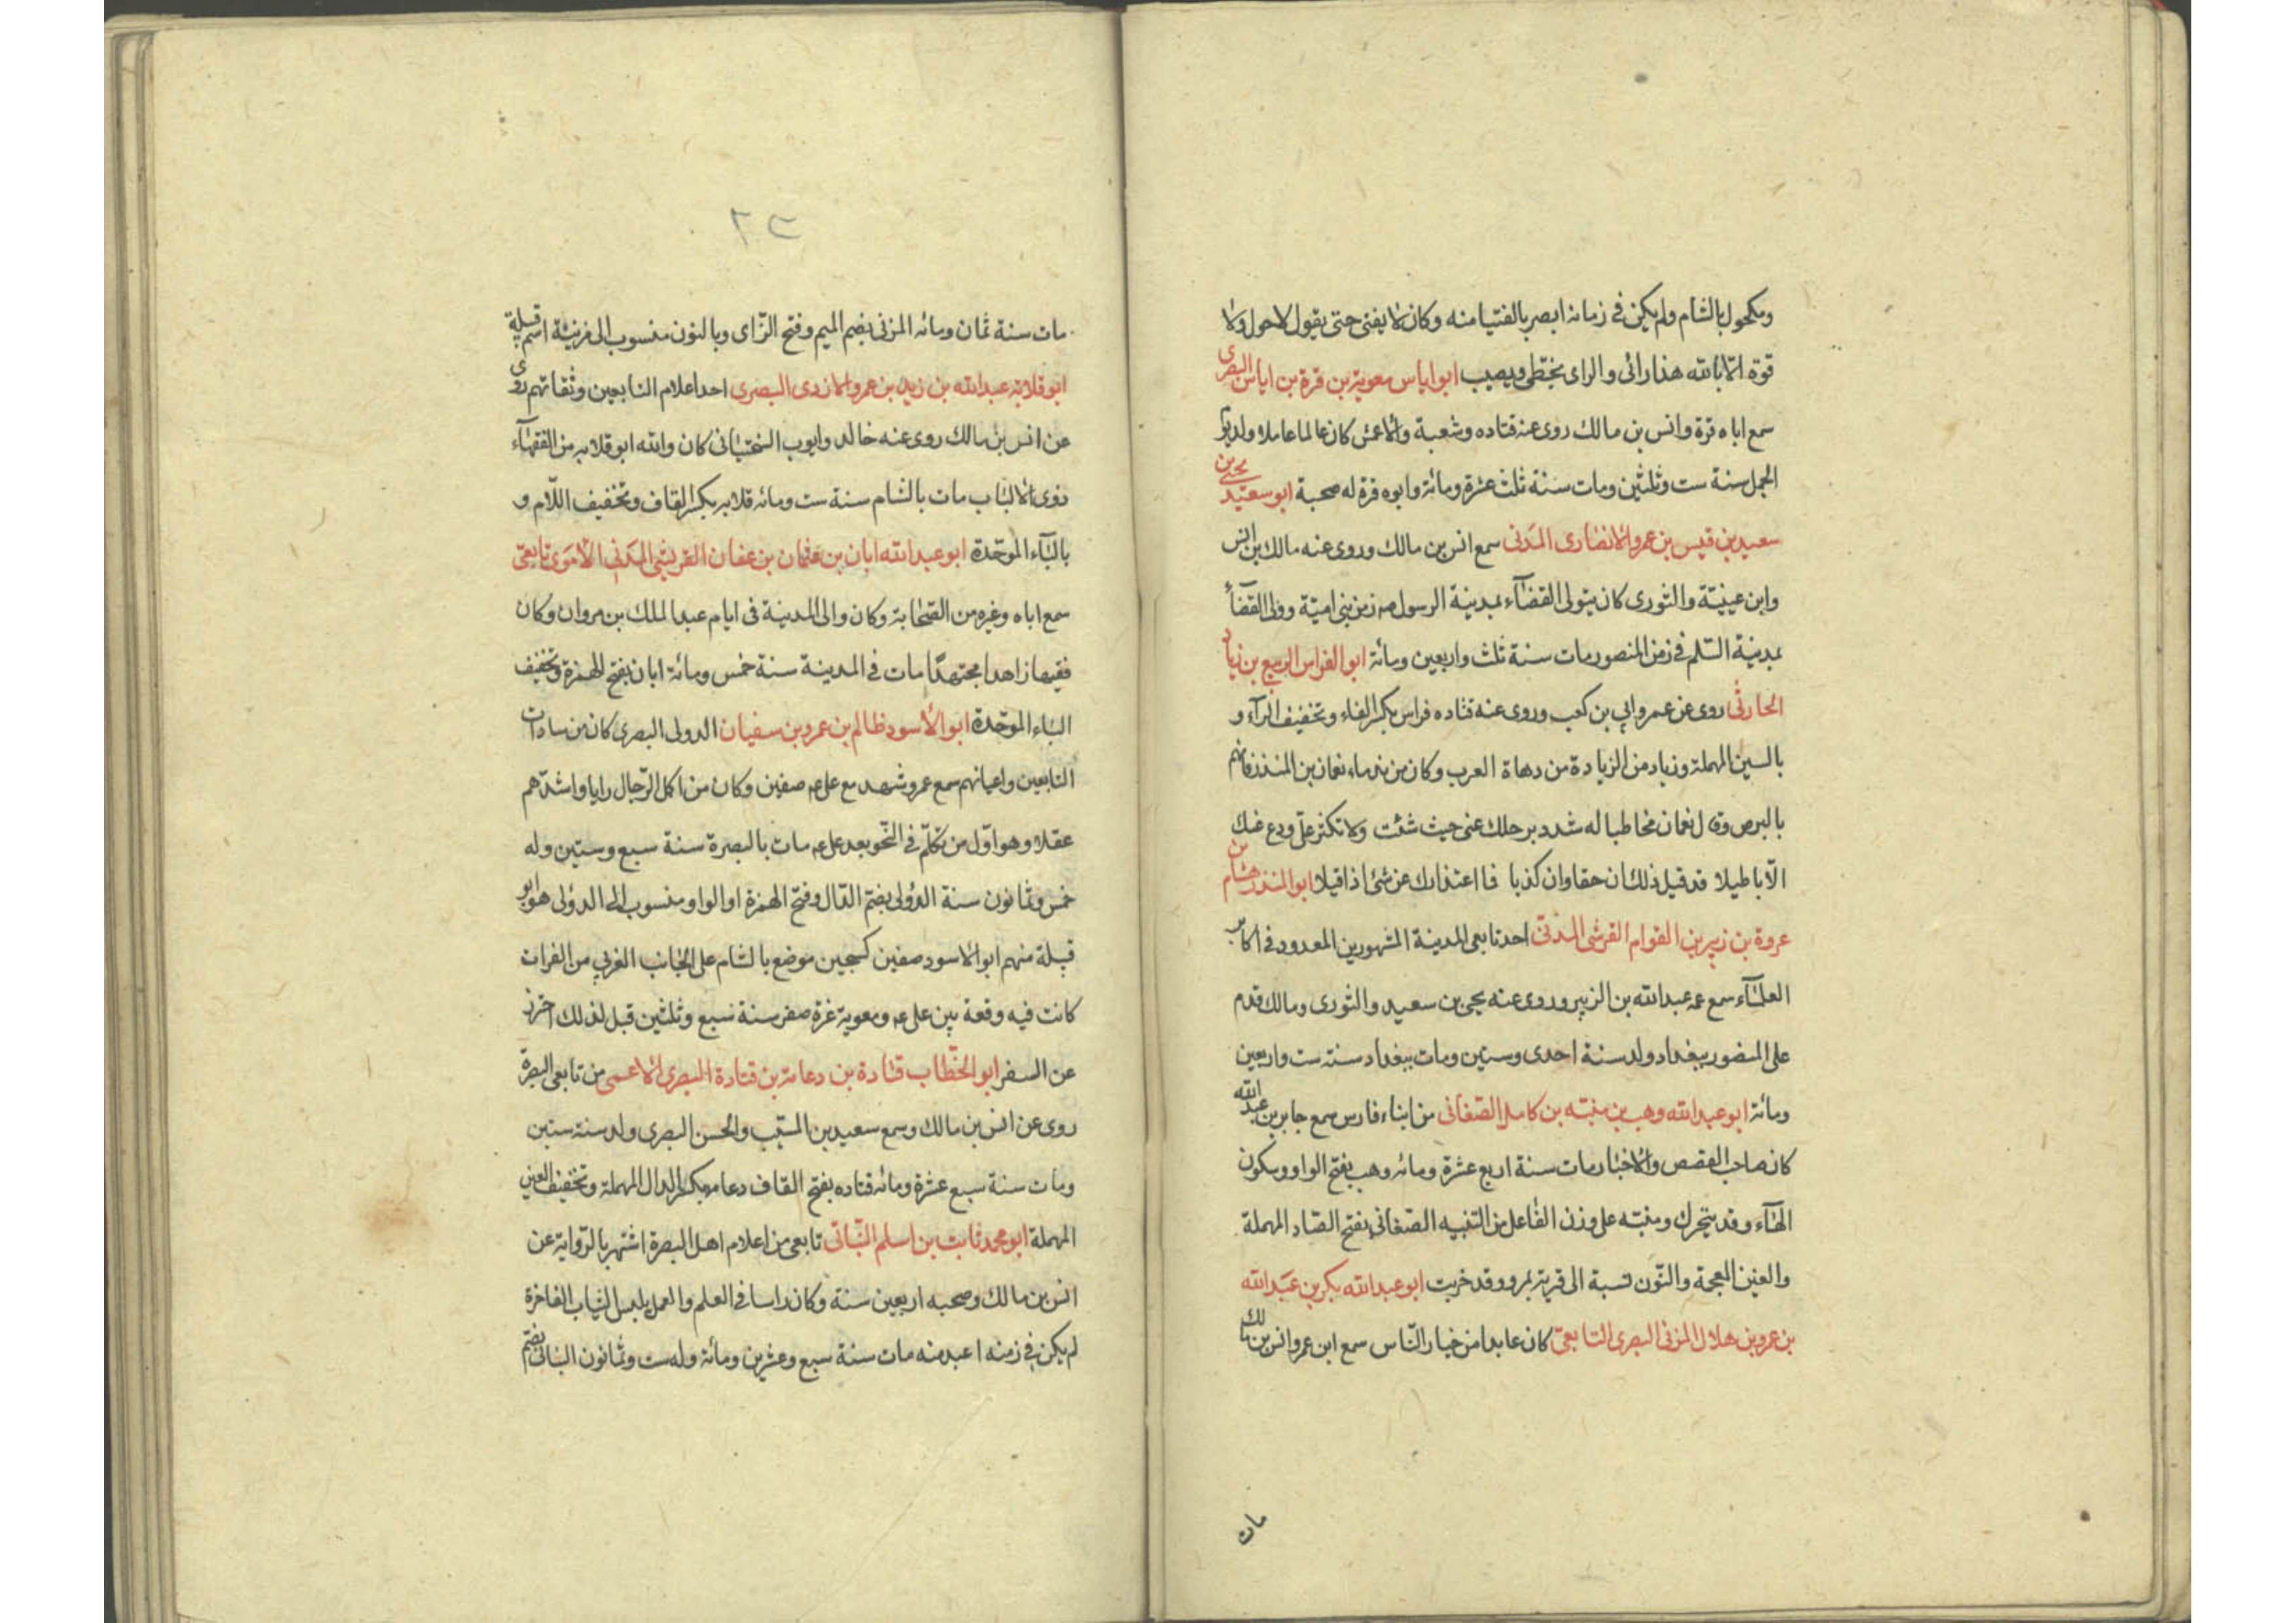 ومكحول بالشام ولم يكن فى زمانه ابصر بالفتيا منه وكان لا يفتى حتى يقول لا حول ولا
قوة الا بالله هذا رائى والراى يخطى ويصيب ابو اياس معوية بن قرة بن اياس البصرى
سمع اباه قرة وانس بن مالك روى عنه قتاده وشعبة والاعمش كان عالما عاملا ولد يوم
الجمل سنة ست وثلثين ومات سنة ثلث عشرة ومائة وابوه قرة له صحبة ابو سعيد يحيى بن
سعيد بن قيس بن عمرو الانصارى المدنى سمع انس بن مالك وروى عنه مالك بن انس
وابن عيينة والثورى كان يتولى القضآء بمدينة الرسول صه زمن بنى امية وولى القضآء
بمدينة السّلم فى زمن المنصور مات سنة ثلث واربعين ومائة ابو الفراس الربيع بن زياد
الحارثى روى عن عمر وابي بن كعب وروى عنه قتاده فراس بكسر الفاء وتخفيف الرآء و
بالسين المهملة وزياد من الزيادة من دهاة العرب وكان من ندماء نعمان بن المنذر فاتهم
بالبرص وقال نعمان مخاطبا له شدد برحلك عنى حيث شئت ولا تكثر على ودع عنك
الّاباطيلا قد قيل ذلك ان حقا وان كذبا فما اعتذارك عن شئ اذا قيلا ابو المنذر هشام بن
عروة بن زبير بن القوام القرشى المدنى احد تابعى المدينة المشهورين المعدود فى اكابر
العلمآء سمع عمه عبدالله بن الزبير وروى عنه يحيى بن سعيد والثورى ومالك قدم
على المنصور ببغداد ولد سنة احدى وستين ومات ببغداد سنة ست واربعين
ومائة ابو عبدالله وهب بن منبّه بن كامل الصّغانى من ابناء فارس سمع جابر بن عبد الله
كان صاحب القصص والاخبار مات سنة اربع عشرة ومائه وهب بفتح الواو وسكون
الهآء وقد يتحرك ومنبّه على وزن الفاعل من التنبيه الصّغانى بفتح الصّاد المهملة
والغين المعجمة والنّون نسبة الى قرية بمرو وقد خربت ابو عبدالله بكر بن عبدالله
بن عمرو بن هلال المزنى البصرى التابعىّ كان عابدا من خيار النّاس سمع ابن عمر وانس بن مالك
مات
٢٣
مات سنة ثمان ومائه المزنى بضم الميم وفتح الزّاى وبالنون منسوب الى مزينة اسم قبيلة
ابو قلابه عبدالله بن زيد بن عمرو الازدى البصرى احد اعلام التابعين وثقاتهم روى
عن انس بن مالك روى عنه خالد وايوب السختيانى كان والله ابو قلابه من الفقهآء
ذوى الالباب مات بالشام سنة ست ومائه قلابه بكسر القاف وتخفيف اللّام و
بالبآء الموحّدة ابو عبدالله ابان بن عثمان بن عفان القريشى المدنى الأموى تابعىّ
سمع اباه وغيره من الصّحابة وكان والى المدينة فى ايام عبدالملك بن مروان وكان
فقيها زاهدا مجتهدًا مات فى المدينة سنة خمس ومائة ابان بفتح الهمزة وتخفيف
الباء الموحّدة ابو الاسود ظالم بن عمرو بن سفيان الدولى البصرى كان من سادات
التابعين واعيانهم سمع عمر وشهد مع على عه صفين وكان من اكمل الرّجال رايا واشدّهم
عقلا وهو اوّل من تكلّم فى النّحو بعد على عه مات بالبصرة سنة سبع وستين وله
خمس وثمانون سنة الدؤلى بضم الدّال وفتح الهمزة او الواو منسوب الى الدولى هو ابو
قبيلة منهم ابو الاسود صفين كسجين موضع بالشام على الجانب الغربي من الفرات
كانت فيه وقعة بين على عه ومعوية غرة صفر سنة سبع وثلثين قبل لذلك احترز
عن السفر ابو الخطّاب قتادة بن دعامة بن قتادة البصرى الاعمى من تابعى البصرة
روى عن انس بن مالك وسمع سعيد بن المسيّب والحسن البصرى ولد سنة ستين
ومات سنة سبع عشرة ومائه قتاده بفتح القاف دعامه بكسر الدال المهملة وتخفيف العين
المهملة ابو محمد ثابت بن اسلم البنّانى تابعى من اعلام اهل البصرة اشتهر بالرّواية عن
انس بن مالك وصحبه اربعين سنة وكان راسا فى العلم والعمل يلبس الثياب الفاخرة
لم يكن فى زمنه اعبد منه مات سنة سبع وعشرين ومائة وله ست وثمانون البنانى بضم